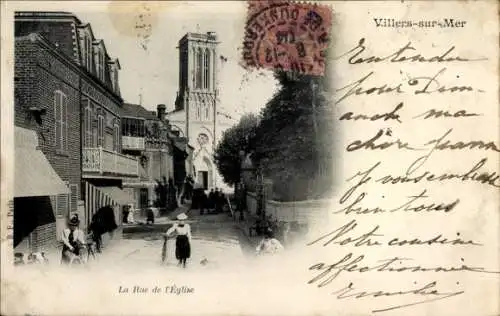 Villers-sur-Mer
Entendu
pour Dim-
anche ma
chère Jeanne
Je vous embrasse
bien tous
Votre cousine
affectionnée
Emilie
La Rue de l'Église